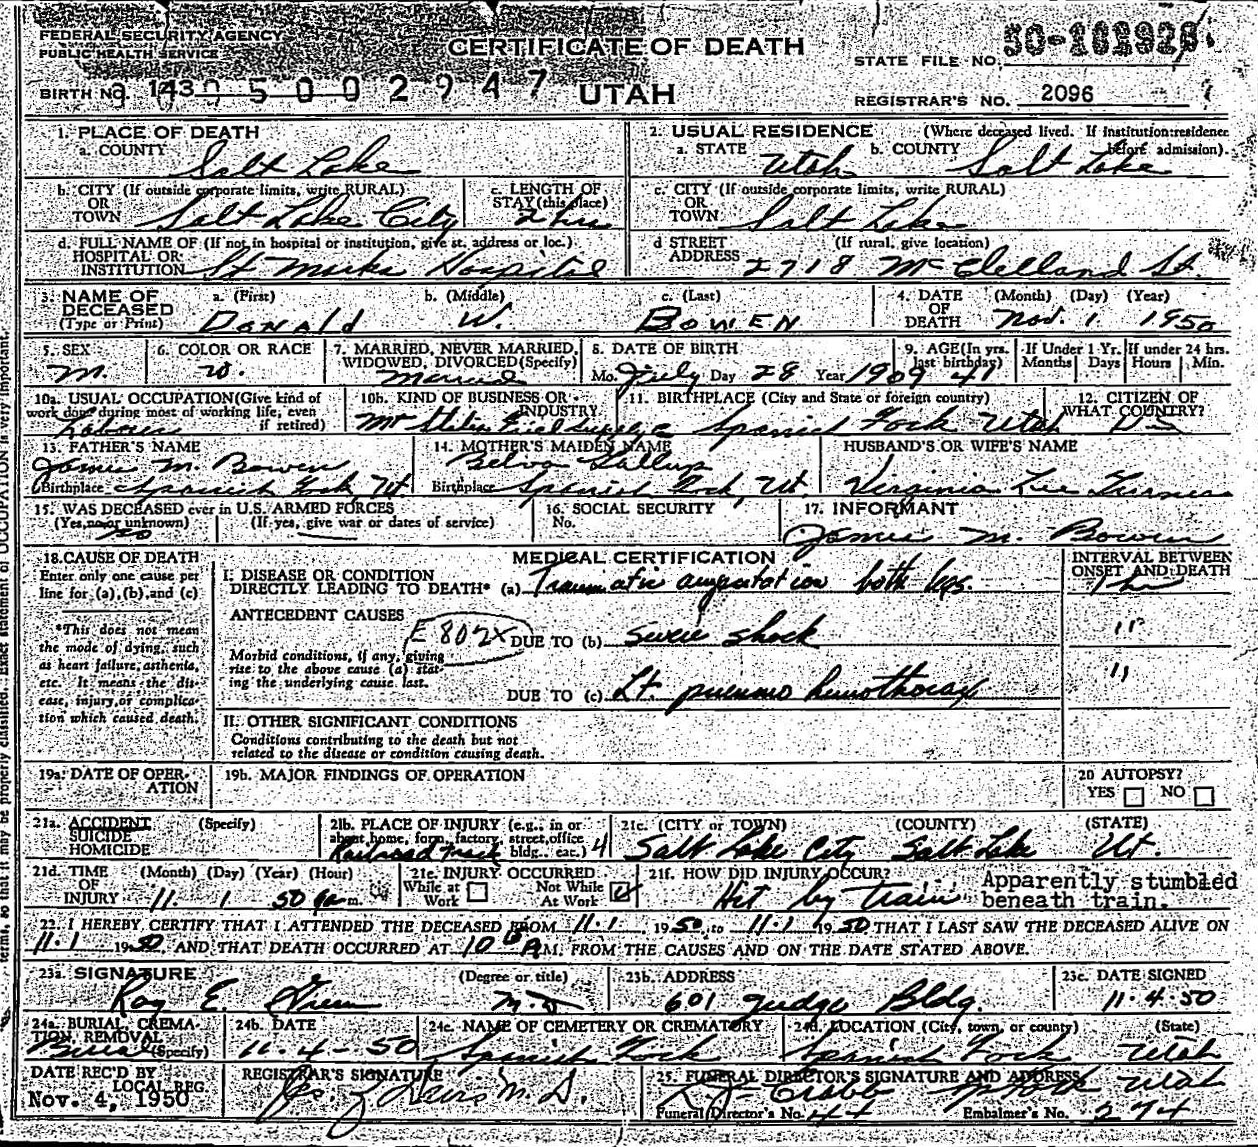 FEDERAL SECURITY AGENCY
PUBLIC HEALTH SERVICE
CERTIFICATE OF DEATH
STATE FILE NO.
BIRTH NO. 143 0 5 0 0 2 9 4 7
UTAH
REGISTRAR'S NO. 2096
1. PLACE OF DEATH
a. COUNTY Salt Lake
2. USUAL RESIDENCE (Where deceased lived. If institution:residence before admission).
a. STATE Utah b. COUNTY Salt Lake
b. CITY (If outside corporate limits, write RURAL)
OR
TOWN Salt Lake City
c. LENGTH OF
STAY (this place)
2 hrs
c. CITY (If outside corporate limits, write RURAL)
OR
TOWN Salt Lake
d. FULL NAME OF (If not in hospital or institution, give st. address or loc.)
HOSPITAL OR
INSTITUTION St Marks Hospital
d STREET (If rural, give location)
ADDRESS 2718 McClelland St.
3. NAME OF
DECEASED
(Type or Print)
a. (First) b. (Middle) c. (Last)
Donald W. Bowen
4. DATE (Month) (Day) (Year)
OF
DEATH Nov. 1 1950
5. SEX
M.
6. COLOR OR RACE
W.
7. MARRIED, NEVER MARRIED,
WIDOWED, DIVORCED (Specify)
Married
8. DATE OF BIRTH
Mo. July Day 28 Year 1909
9. AGE (In yrs.
last birthday)
41
If Under 1 Yr.
Months Days
If under 24 hrs.
Hours Min.
10a. USUAL OCCUPATION (Give kind of
work done during most of working life, even
if retired)
Laborer
10b. KIND OF BUSINESS OR
INDUSTRY
11. BIRTHPLACE (City and State or foreign country)
Spanish Fork Utah
12. CITIZEN OF
WHAT COUNTRY?
US
13. FATHER'S NAME
James M. Bowen
Birthplace Spanish Fork, Ut
14. MOTHER'S MAIDEN NAME
Belva Gallup
Birthplace Spanish Fork, Ut.
HUSBAND'S OR WIFE'S NAME
Virginia Lee Turner
15. WAS DECEASED ever in U.S. ARMED FORCES
(Yes, no or unknown) (If yes, give war or dates of service)
no
16. SOCIAL SECURITY
No.
17. INFORMANT
James M. Bowen
18. CAUSE OF DEATH
Enter only one cause per
line for (a), (b), and (c)
*This does not mean
the mode of dying, such
as heart failure, asthenia,
etc. It means the dis-
ease, injury, or complica-
tion which caused death.
MEDICAL CERTIFICATION
INTERVAL BETWEEN
ONSET AND DEATH
I. DISEASE OR CONDITION
DIRECTLY LEADING TO DEATH* (a) Traumatic amputation both legs. 1 hr
ANTECEDENT CAUSES
E 802X
DUE TO (b) severe shock "
Morbid conditions, if any, giving
rise to the above cause (a) stat-
ing the underlying cause last.
DUE TO (c) Lt. pneumo hemothorax "
II. OTHER SIGNIFICANT CONDITIONS
Conditions contributing to the death but not
related to the disease or condition causing death.
19a. DATE OF OPER-
ATION
19b. MAJOR FINDINGS OF OPERATION
20 AUTOPSY?
YES NO
21a. ACCIDENT (Specify)
SUICIDE
HOMICIDE
21b. PLACE OF INJURY (e.g., in or
about home, farm, factory, street, office
bldg., etc.) 4
Railroad Track
21c. (CITY or TOWN) (COUNTY) (STATE)
Salt Lake City Salt Lake Ut.
21d. TIME (Month) (Day) (Year) (Hour)
OF
INJURY 11. 1 50 9 a.m.
21e. INJURY OCCURRED
While at
Work
Not While
At Work
21f. HOW DID INJURY OCCUR?
Hit by train
Apparently stumbled
beneath train.
22. I HEREBY CERTIFY THAT I ATTENDED THE DECEASED FROM 11.1 1950, to 11.1 1950 THAT I LAST SAW THE DECEASED ALIVE ON
11.1 1950 AND THAT DEATH OCCURRED AT 10 A M. FROM THE CAUSES AND ON THE DATE STATED ABOVE.
23a. SIGNATURE (Degree or title)
Roy E. M.D.
23b. ADDRESS
601 Judge Bldg.
23c. DATE SIGNED
11.4.50
24a. BURIAL, CREMA-
TION, REMOVAL
(Specify)
Burial
24b. DATE
11-4-50
24c. NAME OF CEMETERY OR CREMATORY
Spanish Fork
24d. LOCATION (City, town, or county) (State)
Spanish Fork Utah
DATE REC'D BY
LOCAL REG
Nov. 4, 1950
REGISTRAR'S SIGNATURE
M.D.
25. FUNERAL DIRECTOR'S SIGNATURE AND ADDRESS
Utah
Funeral Director's No. 44 Embalmer's No. 274
terms, so that it may be properly classified. Exact statement of OCCUPATION is very important.